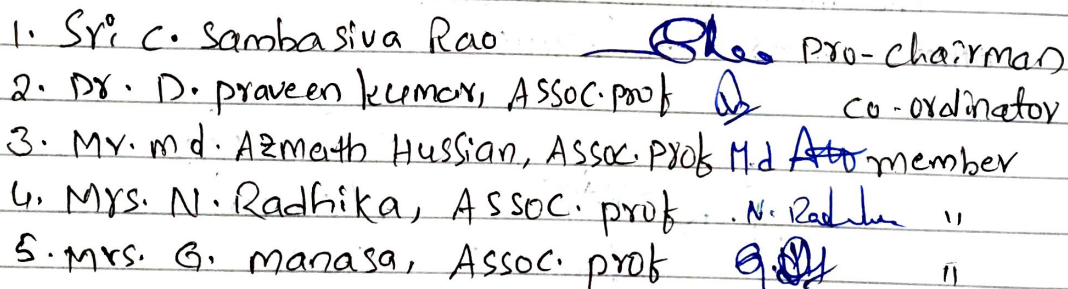 1. Sri C. Sambasiva Rao pro-chairman
2. Dr. D. praveen kumar, ASSOC. prof co-ordinator
3. Mr. md. Azmath Hussian, Assoc. prof M.d member
4. Mrs. N. Radhika, ASSOC. prof N. "
5. mrs. G. manasa, Assoc. prof G. "